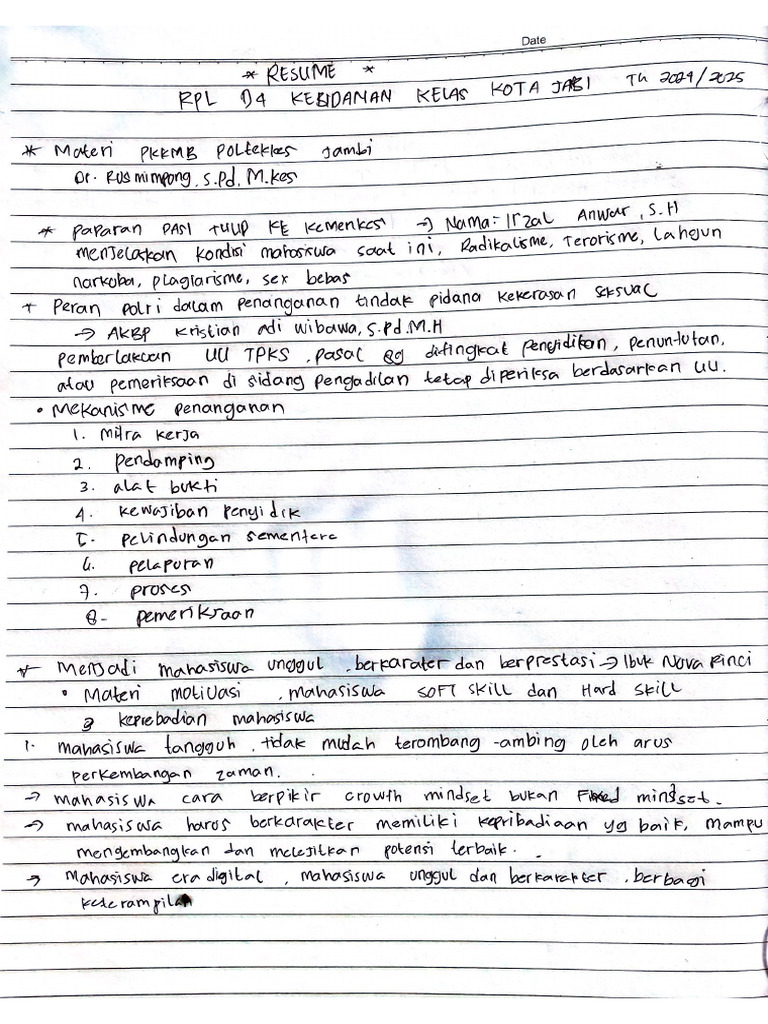 Date
* RESUME *
RPL D4 KEBIDANAN KELAS KOTA JABI TH 2024/2025
* Materi PKKMB POLTEKKES Jambi
Dr. Rusmimpong, S.Pd, M.Kes
* paparan DARI TULIP KE KEMENKES → Nama: Irzal Anwar, S.H
menjelaskan kondisi mahasiswa saat ini, Radikalisme, Terorisme,
narkoba, plagiarisme, sex bebas
+ Peran polri dalam penanganan tindak pidana kekerasan seksual
→ AKBP Kristian adi wibawa, S.Pd.M.H
pemberlakuan UU TPKS, pasal di tingkat penyidikan, penuntutan,
atau pemeriksaan di sidang pengadilan tetap diperiksa berdasarkan UU.
• Mekanisme penanganan
1. mitra kerja
2. pendamping
3. alat bukti
4. kewajiban penyidik
5. pelindungan sementara
6. pelaporan
7. proses
8. pemeriksaan
* Menjadi mahasiswa unggul, berkarater dan berprestasi → Ibuk Nova Rinci
• Materi motivasi, mahasiswa SOFT SKILL dan Hard SKILL
3 kepribadian mahasiswa
1. mahasiswa tangguh, tidak mudah terombang-ambing oleh arus
perkembangan zaman.
→ mahasiswa cara berpikir Growth mindset bukan Fixed mindset.
→ mahasiswa harus berkarakter memiliki kepribadiaan yg baik, mampu
mengembangkan dan melejitkan potensi terbaik.
→ Mahasiswa era digital, mahasiswa unggul dan berkarakter, berbagi
keterampilan